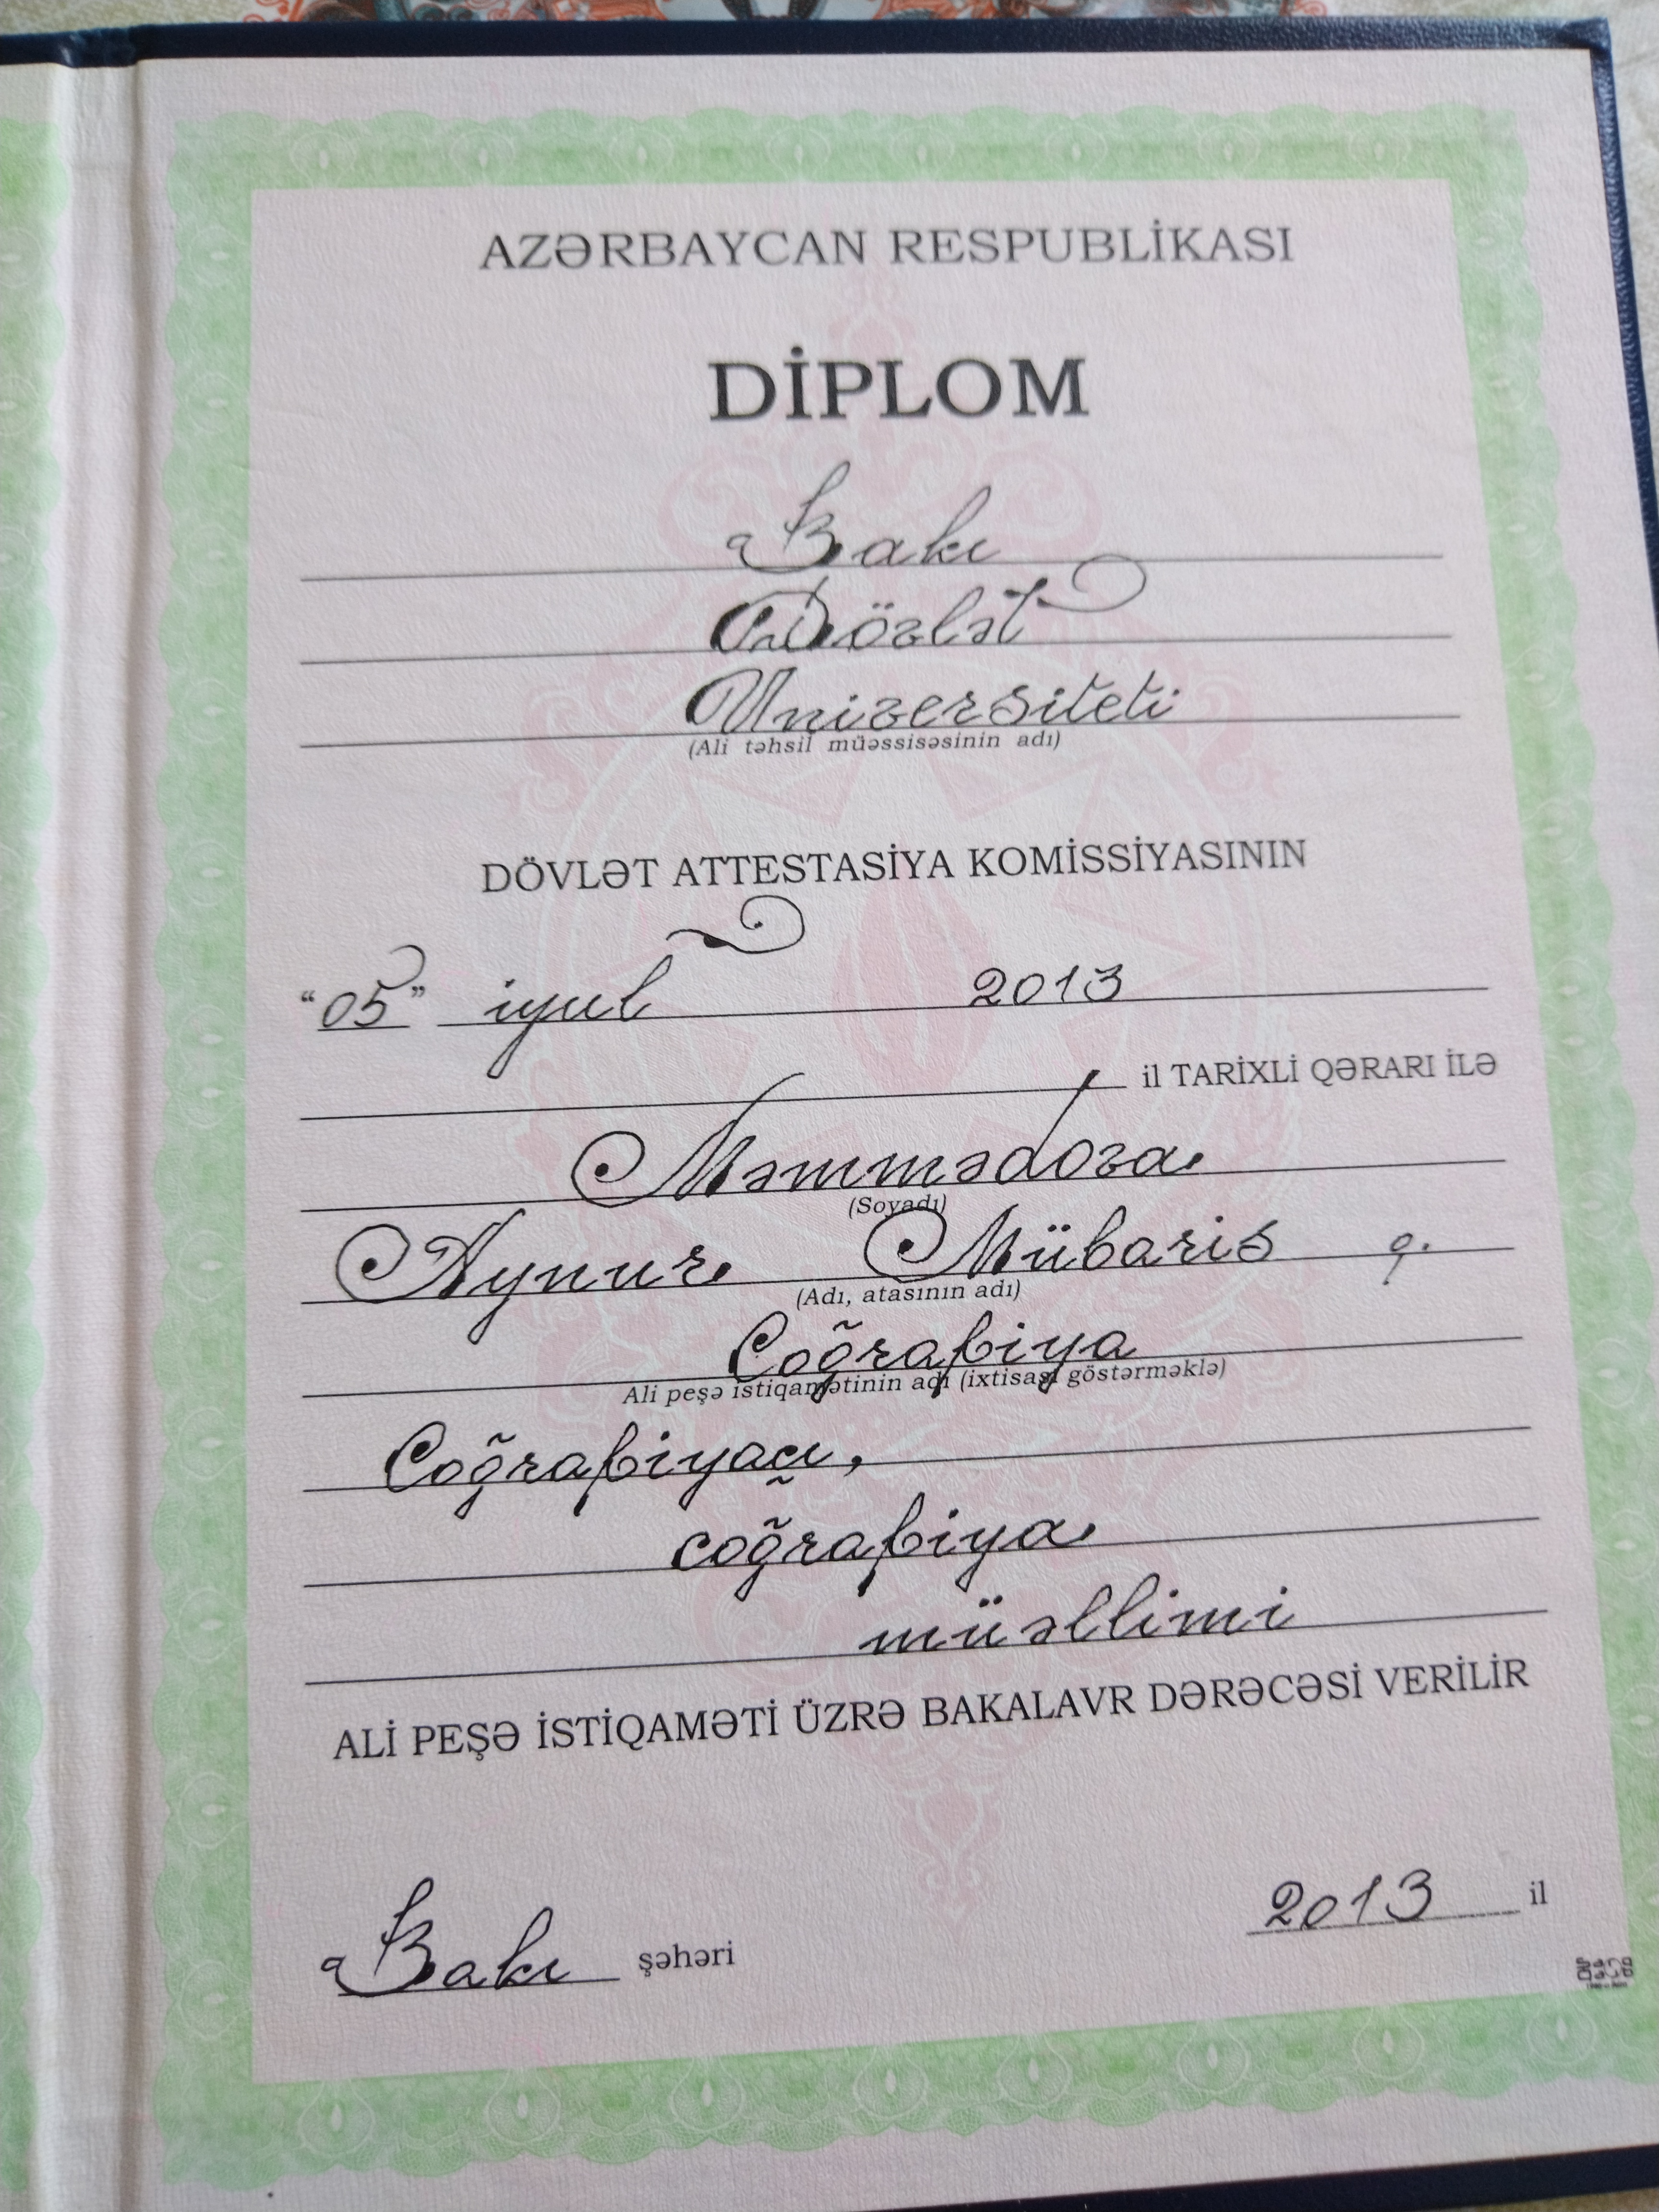 AZƏRBAYCAN RESPUBLİKASI
DİPLOM
Bakı
Dövlət
Universiteti
(Ali təhsil müəssisəsinin adı)
DÖVLƏT ATTESTASİYA KOMİSSİYASININ
“05” iyul 2013
il TARİXLİ QƏRARI İLƏ
Məmmədova
(Soyadı)
Aynur Mübariz q.
(Adı, atasının adı)
Coğrafiya
Ali peşə istiqamətinin adı (ixtisası göstərməklə)
Coğrafiyaçı,
coğrafiya
müəllimi
ALİ PEŞƏ İSTİQAMƏTİ ÜZRƏ BAKALAVR DƏRƏCƏSİ VERİLİR
Bakı şəhəri 2013 il